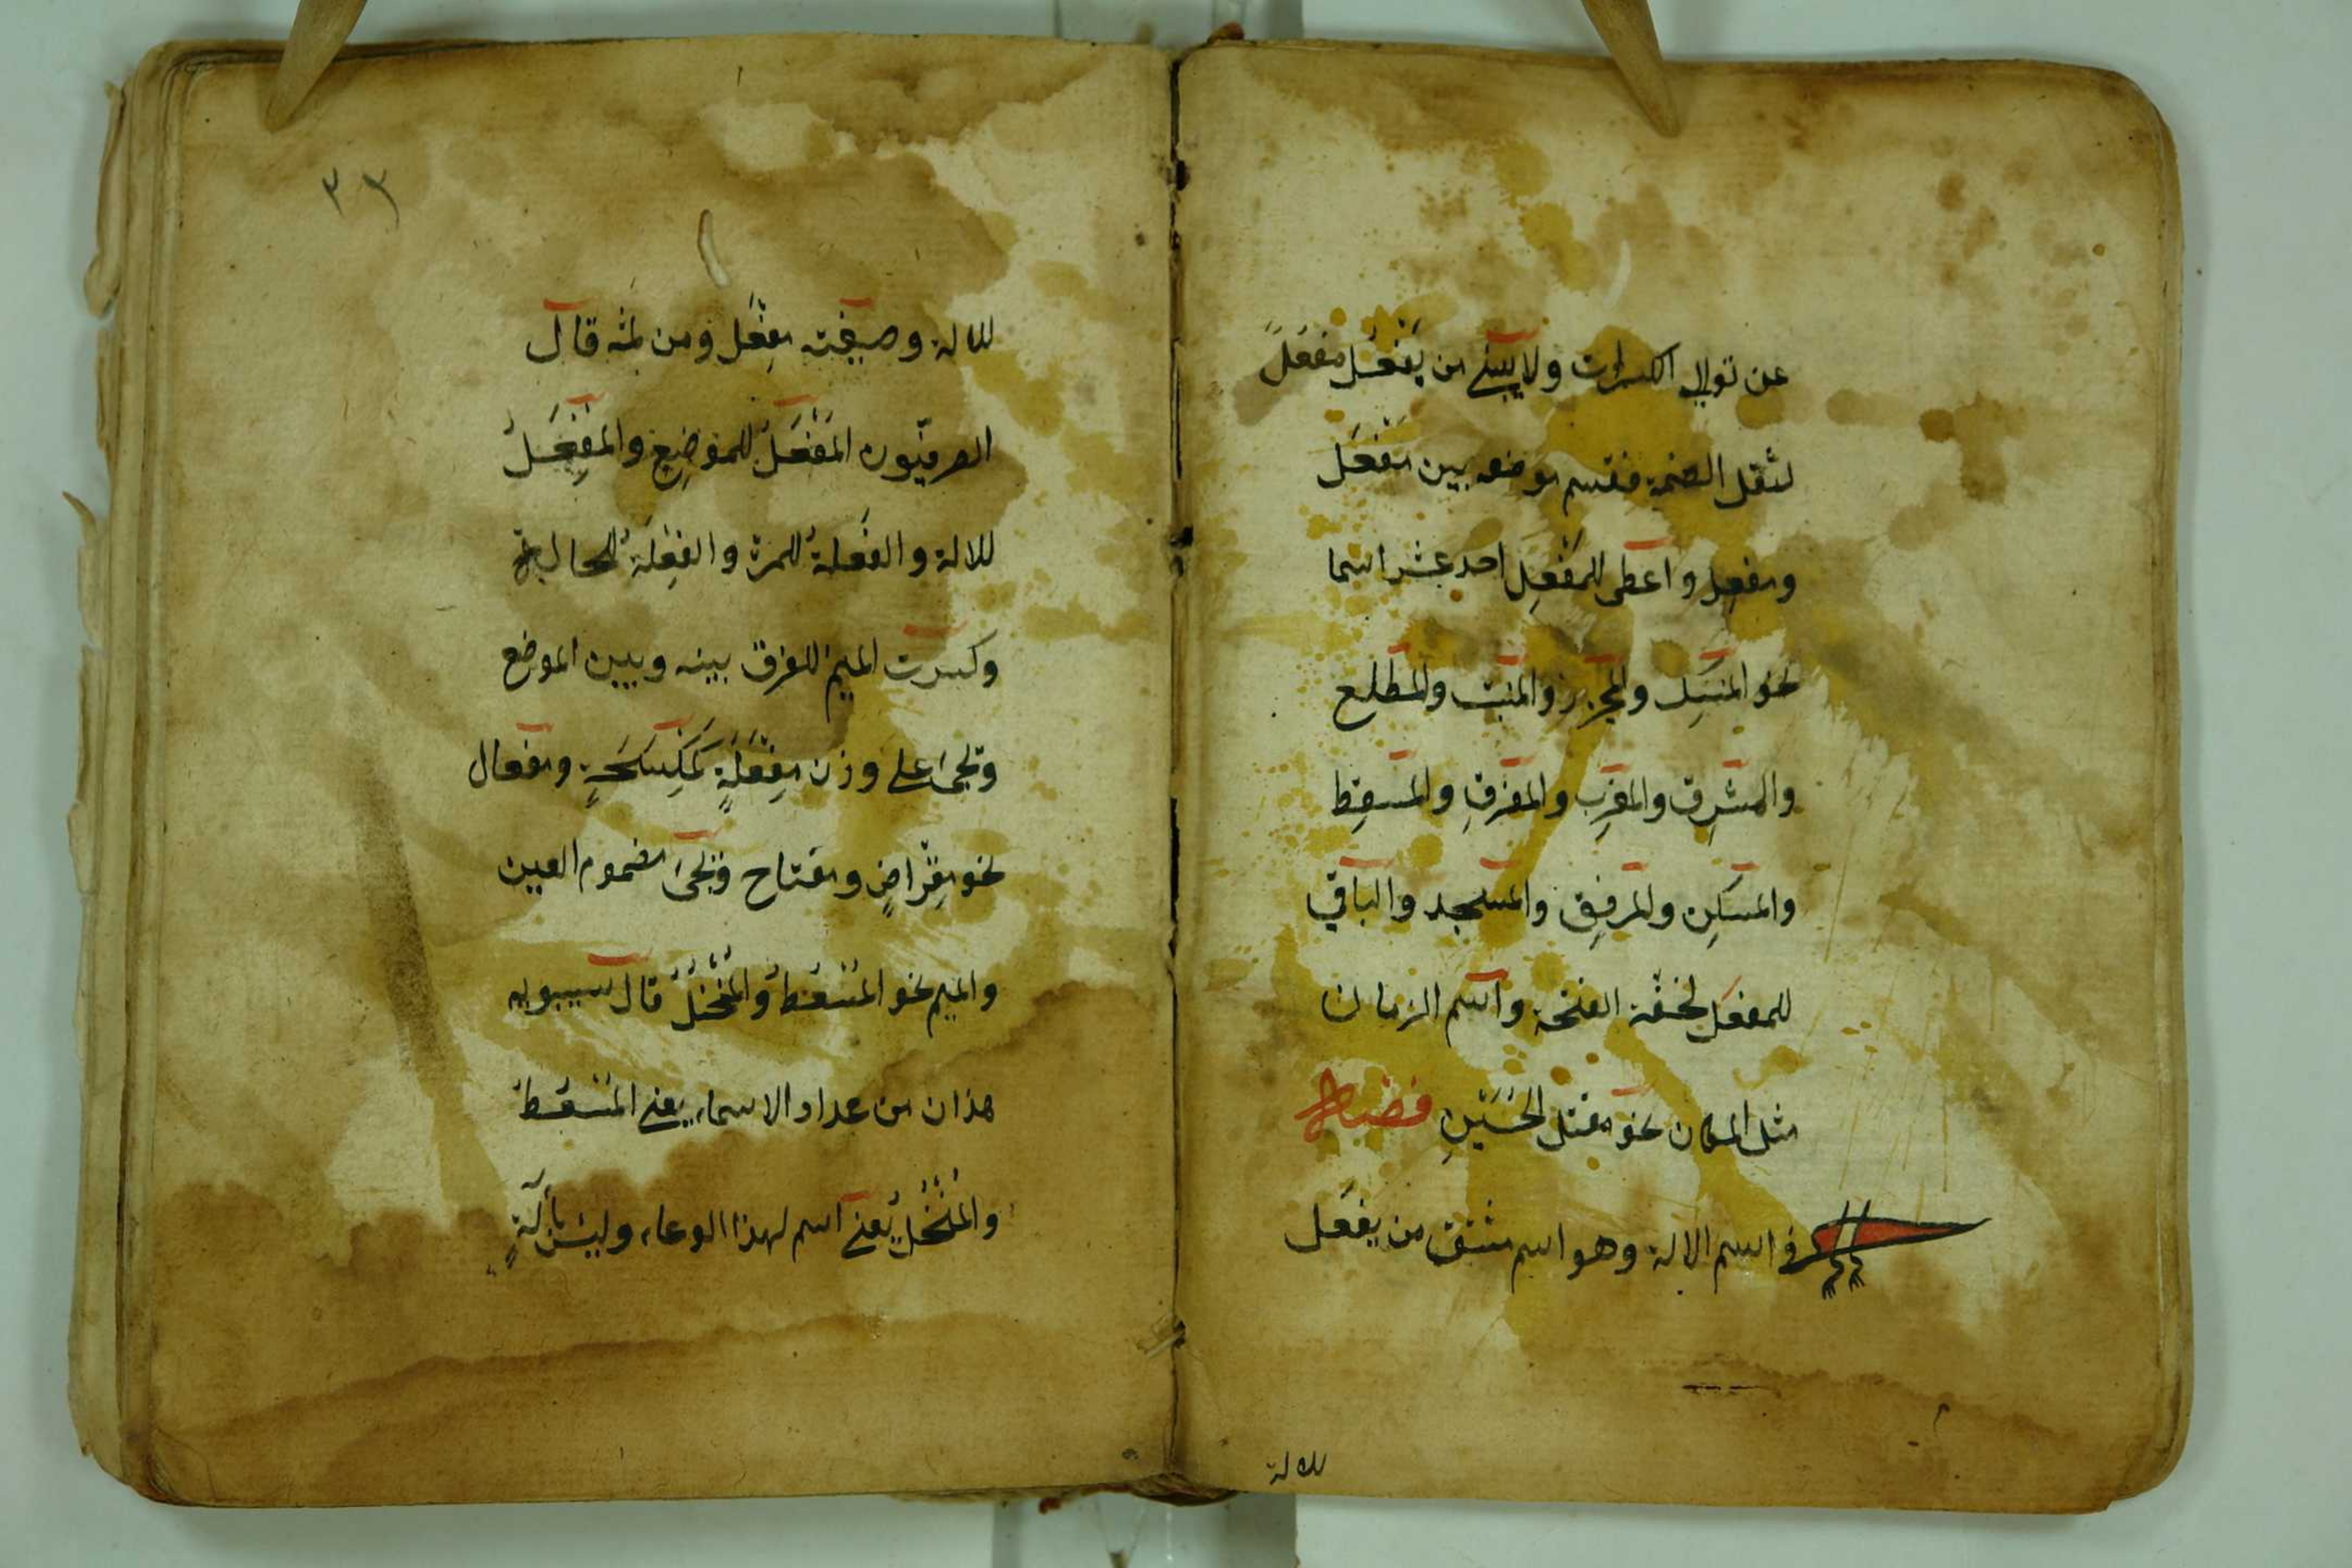 عن توالي الكسرات ولا يبنى من يَفْعُل مفعُل
لثقل الضمة فقسم موضعه بين مَفْعَل
ومفعِل واعطى للمَفْعِل احد عشر اسما
نحو المنسِك والمجزِر والمنبت والمطلع
والمشرِق والمغرِب والمفرق والمسقِط
والمسكِن والمرفِق والمسجد والباقي
للمفعَل لخفّة الفتحة واسم الزمان
مثل المكان نحو مقتل الحُسَيْنِ فصل
في اسم الالة وهو اسم مشتق من يفعَل
للالة
٣٣
للالة وصيغته مِفْعَل ومن ثمّه قال
الصرفيّون المَفْعَلُ للموضِع والمِفْعَلُ
للالة والفَعلةُ للمرّة والفِعْلَةُ للحالة
وكسرت الميم للفرق بينه وبين الموضع
وتجئ على وزن مِفْعَلَةٍ كَمِكْسَحَةٍ ومفعال
نحو مِقْراضٍ ومفتاح وتجئ مضموم العين
والميم نحو المُسْعُطُ والمُنْخُلُ قال سيبويه
هذان من عداد الاسماء يعني المُسْعُط
والمُنْخُل يعني اسم لهذا الوعاء وليس بآلةٍ